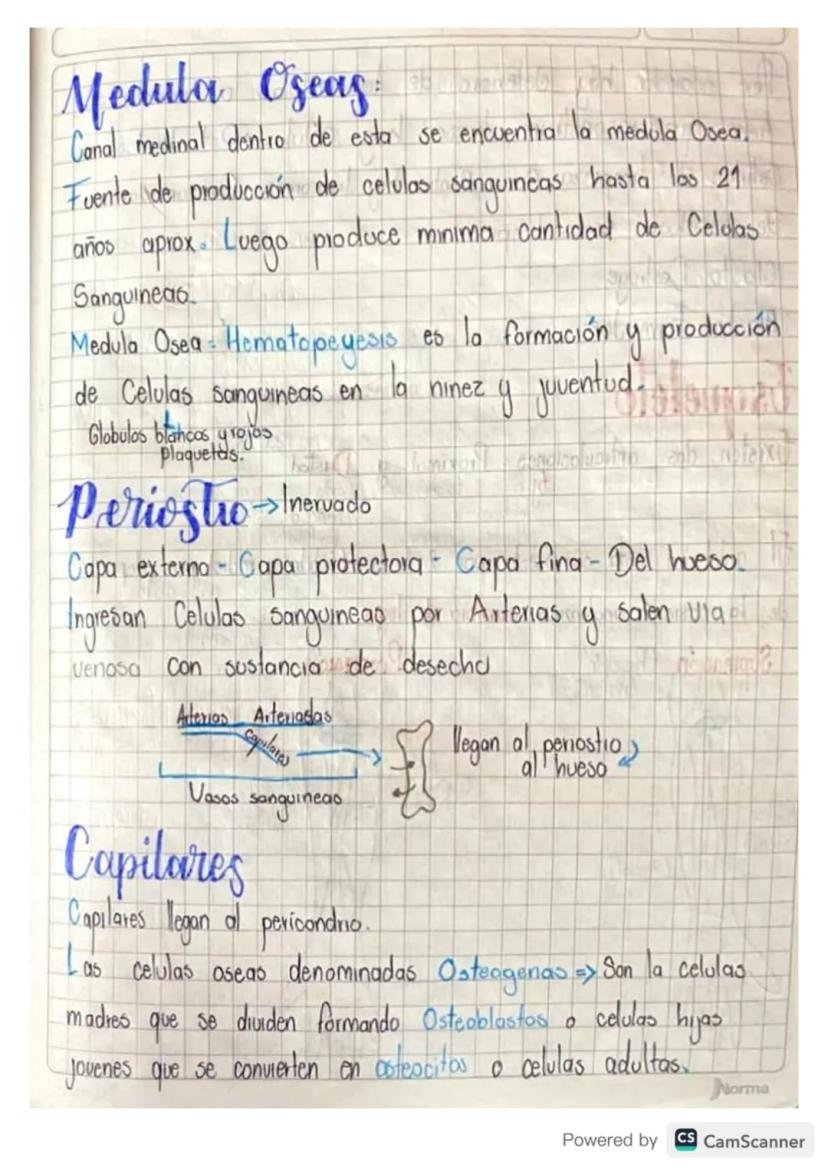 Medula Oseas:
Canal medinal dentro de esta se encuentra la medula Osea.
Fuente de producción de celulas sanguineas hasta los 21
años aprox. Luego produce minima cantidad de Celulas
Sanguineas.
Medula Osea = Hematopeyesis es la formación y producción
de Celulas sanguineas en la ninez y juventud.
Globulos blancos y rojos
plaquetas.
Periostio → Inervado
Capa externa - Capa protectora - Capa fina - Del hueso.
Ingresan Celulas sanguineas por Arterias y salen via
venosa con sustancia de desecho
Arterias Arteriadas
Capilares
llegan al periostio
al hueso
Vasos sanguineas
Capilares
Capilares llegan al pericondrio.
Las celulas oseas denominadas Osteogenas => Son la celulas
madres que se dividen formando Osteoblastos o celulas hijas
jovenes que se convierten en osteocitos o celulas adultas.
Norma
Powered by CS CamScanner